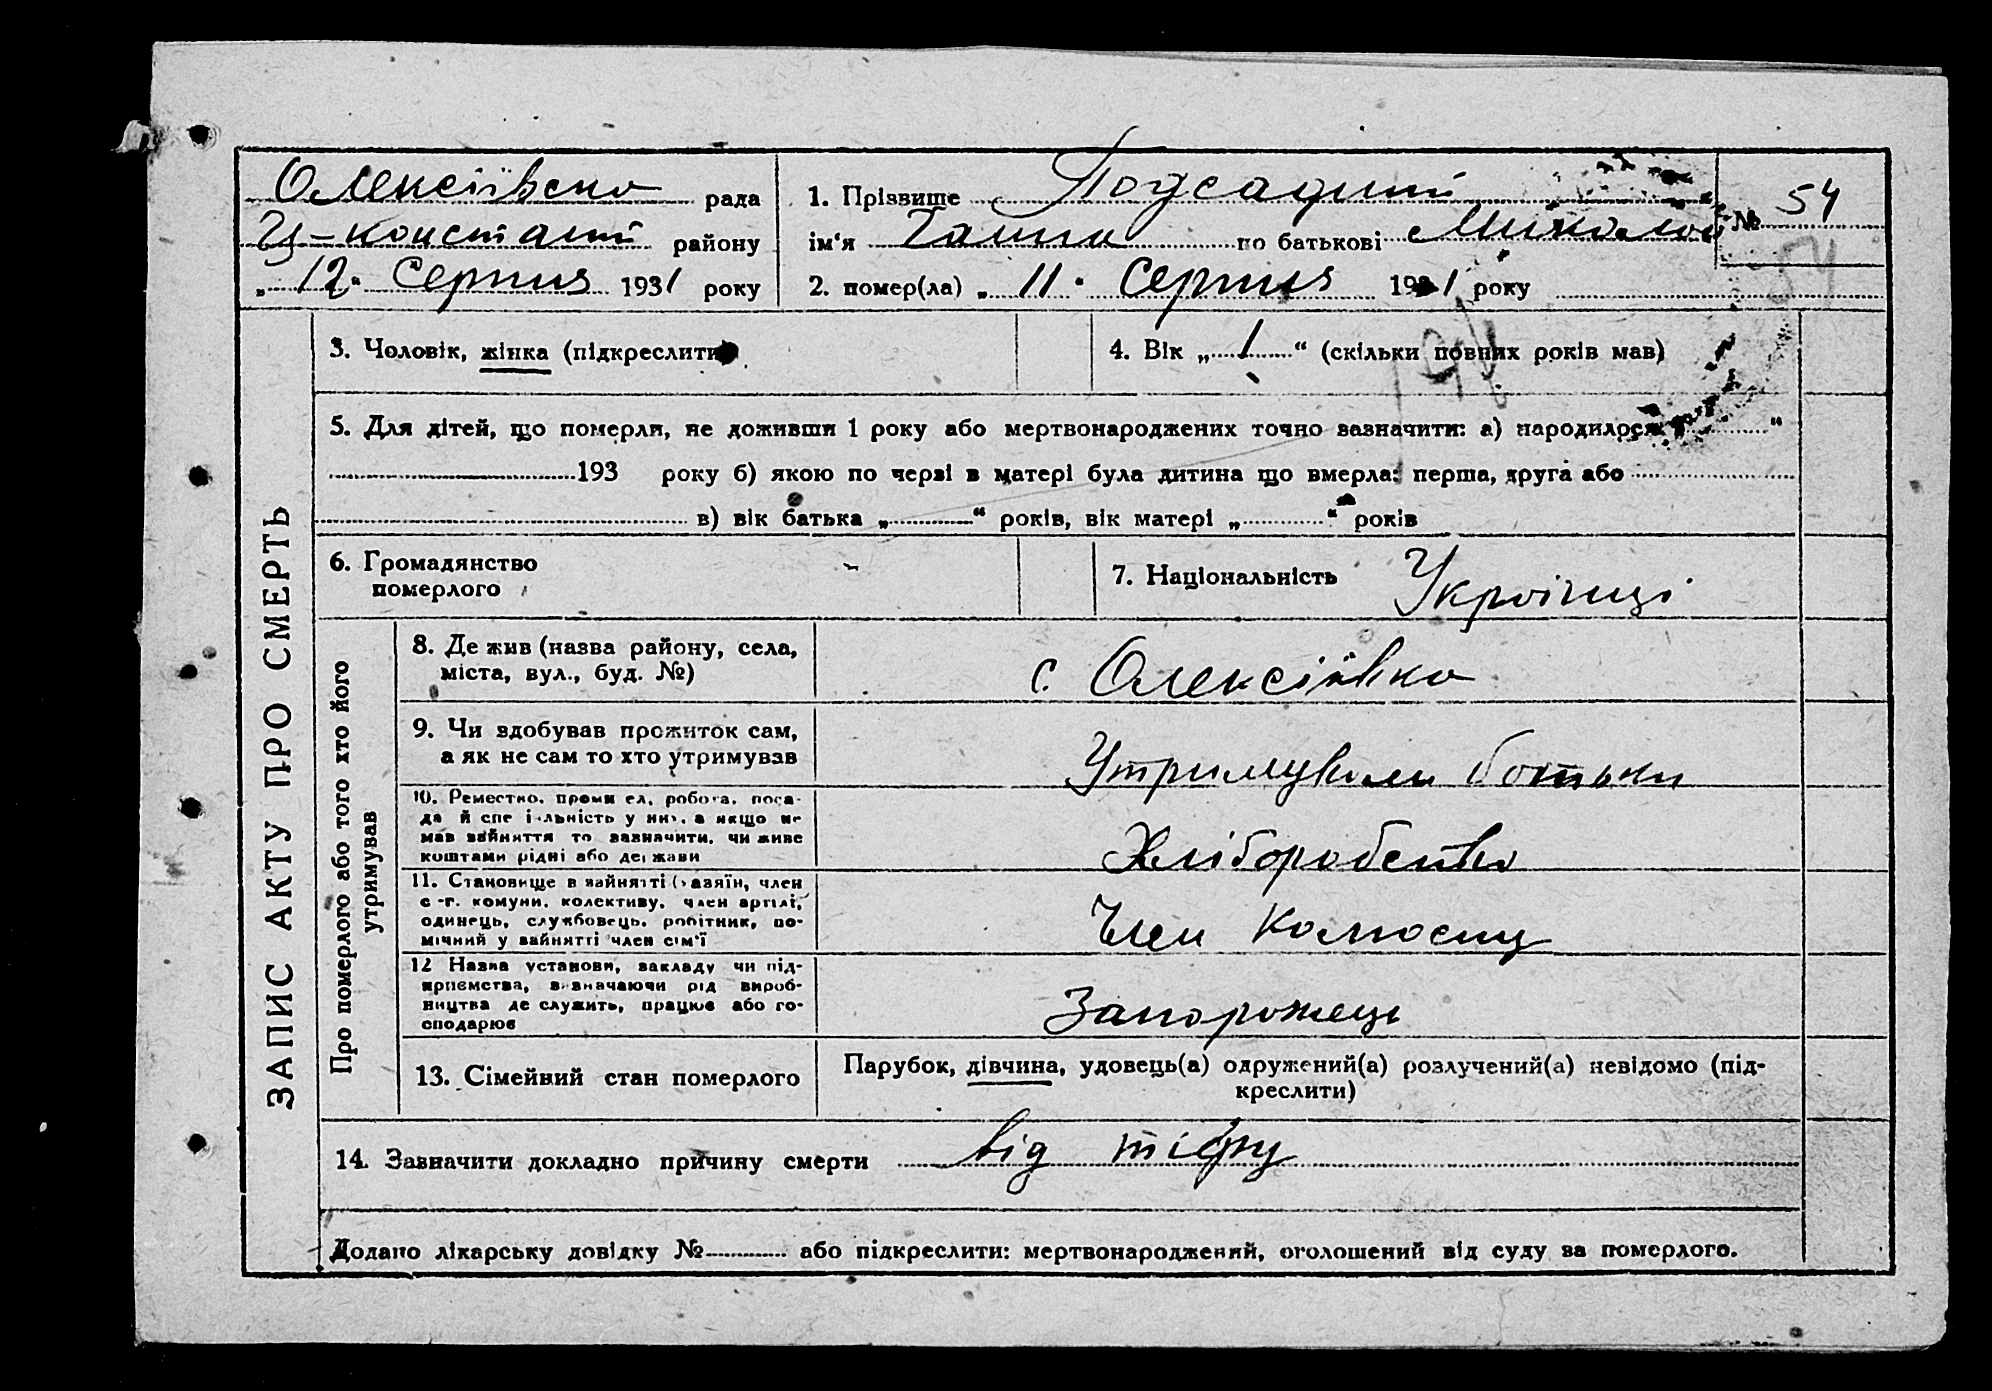 Олексіївська рада
района
„12“ Серпня 1931 року
1. Прізвище Подсадний
ім'я Ганна по батькові Микола
№ 54
2. помер(ла) „11“ Серпня 1931 року
ЗАПИС АКТУ ПРО СМЕРТЬ
3. Чоловік, жінка (підкреслити)
4. Вік „1“ (скільки повних років мав)
5. Для дітей, що померли, не доживши 1 року або мертвонароджених точно зазначити: а) народилося “
193 року б) якою по черзі в матері була дитина що вмерла: перша, друга або
в) вік батька „ “ років, вік матері „ “ років
6. Громадянство
померлого
7. Національність Українці
Про померлого або того хто його
утримував
8. Де жив (назва району, села,
міста, вул., буд. №)
с. Олексіївка
9. Чи здобував прожиток сам,
а як не сам то хто утримував
Утримували батьки
10. Ремество, промисел, робота, поса-
да й спеціяльність у них, а якщо не
мав зайняття то зазначити, чи живе
коштами рідні або держави
Хліборобство
11. Становище в зайнятті (хазяїн, член
с.-г. комуни, колективу, член артілі,
одинець, службовець, робітник, по-
мічний у зайнятті член сім'ї
Член Колгоспу
12 Назва установи, закладу чи під-
приємства, визначаючи рід вироб-
ництва де служить, працює або го-
сподарює
Запорожець
13. Сімейний стан померлого
Парубок, дівчина, удовець(а) одружений(а) розлучений(а) невідомо (під-
креслити)
14. Зазначити докладно причину смерти від тіфу
Додано лікарську довідку № або підкреслити: мертвонароджений, оголошений від суду за померлого.